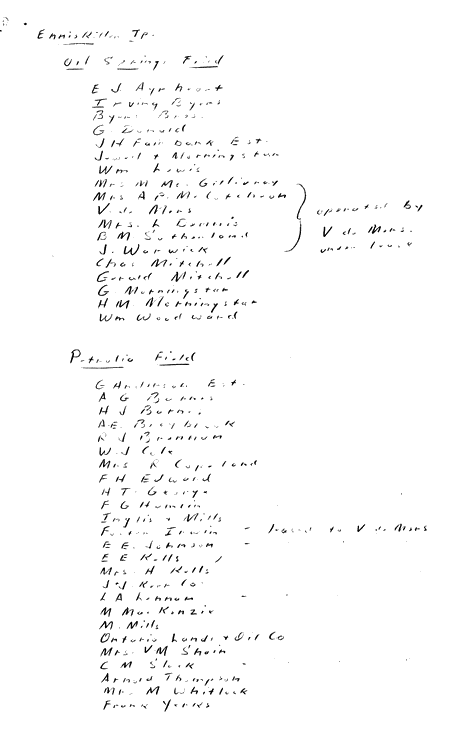 Enniskillen Tp.
Oil Springs Field
E J Ayrheart
Irving Byers
Byers Bros.
G. Donald
J H Fairbank Est.
Jewell & Morningstar
Wm Lewis
Mrs M Mc Gillivray
Mrs A P. McCutcheon
V. de Mons
Mrs. L
B M Sutherland
J. Warwick
operated by
V de Mons.
under lease
Chas Mitchell
Gerald Mitchell
G Morningstar
H M Morningstar
Wm Woodward
Petrolia Field
G Anderson Est.
A G Barnes
H J Barnes
A.E. Braybrook
R J Brennan
W. J Cole
Mrs R Copeland
F H Edward
H T. George
F G Hamlin
Inglis & Mills
Irwin - leased to V de Mons
E E. Johnson -
E E Kells
Mrs. H Kells
J. J Kerr Co.
L A Lannum -
M Mac Kenzie
M. Mills
Ontario Lands & Oil Co
Mrs. V M Shain
C M Slack -
Arnold Thompson
Mrs. M Whitlock
Frank Yerks